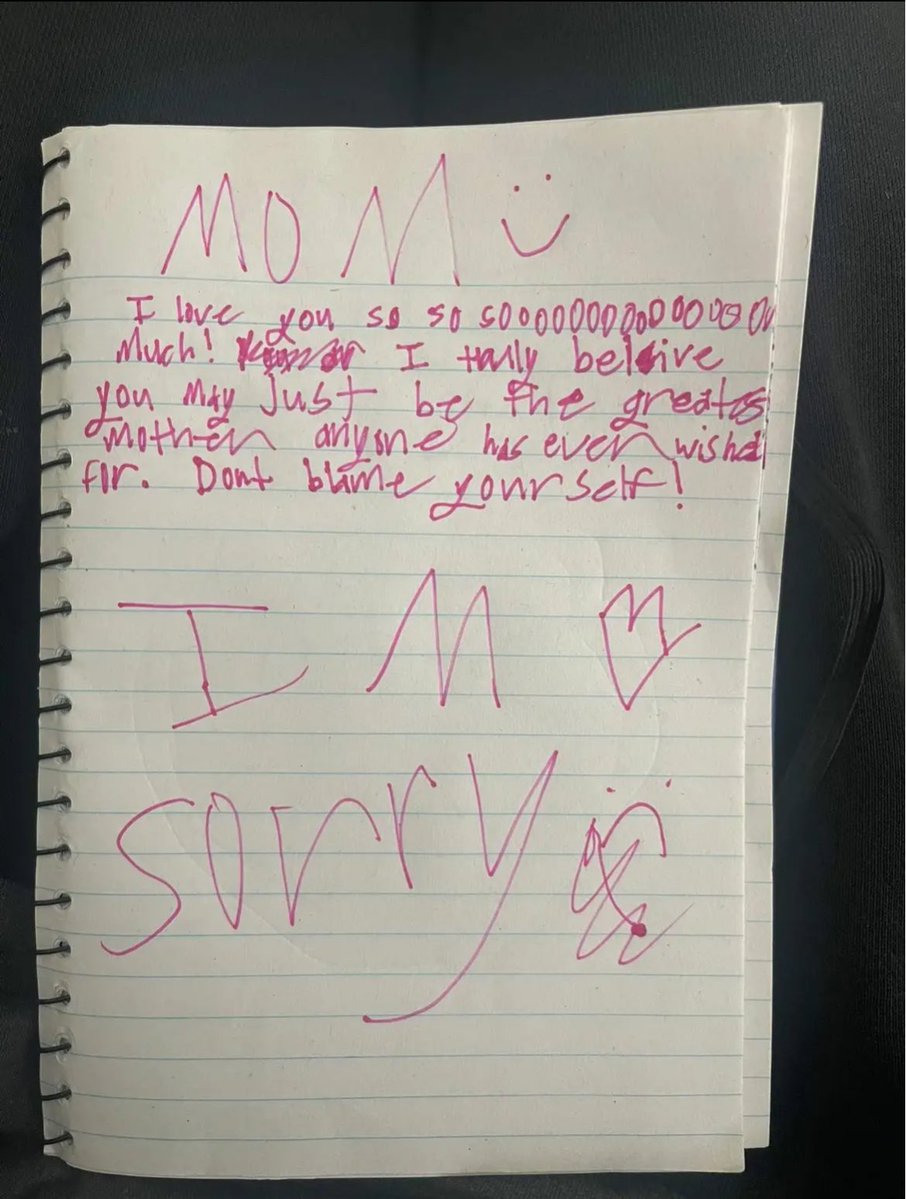 MOM
I love you so so sooooooooooooooo
Much! I truly beleive
you may just be the greates
mother anyone has ever wished
for. Dont blame yourself!
I M
sorry